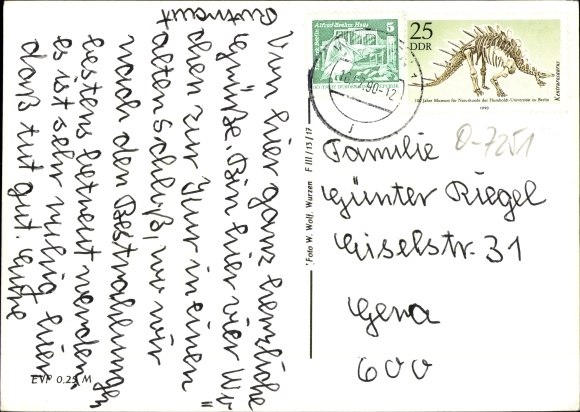 Von hier ganz herzliche
Grüße. Bin hier vier Wo=
chen zur Kur in einem
alten Schloß, wo wir
nach den Bestrahlungen
bestens betreut werden.
es ist sehr ruhig hier
daß tut gut. Grüße
Alfred-Brehm-Haus
5
DEUTSCHE DEMOKRATISCHE REPUBLIK
25
DDR
100 Jahre Museum für Naturkunde der Humboldt-Universität zu Berlin
1990
Kentrurosaurus
90-12
O-7251
Familie
Günter Riegel
Giselstr. 31
Gera
600
Foto W. Wolf, Wurzen F III/15/17
EVP 0,25 M